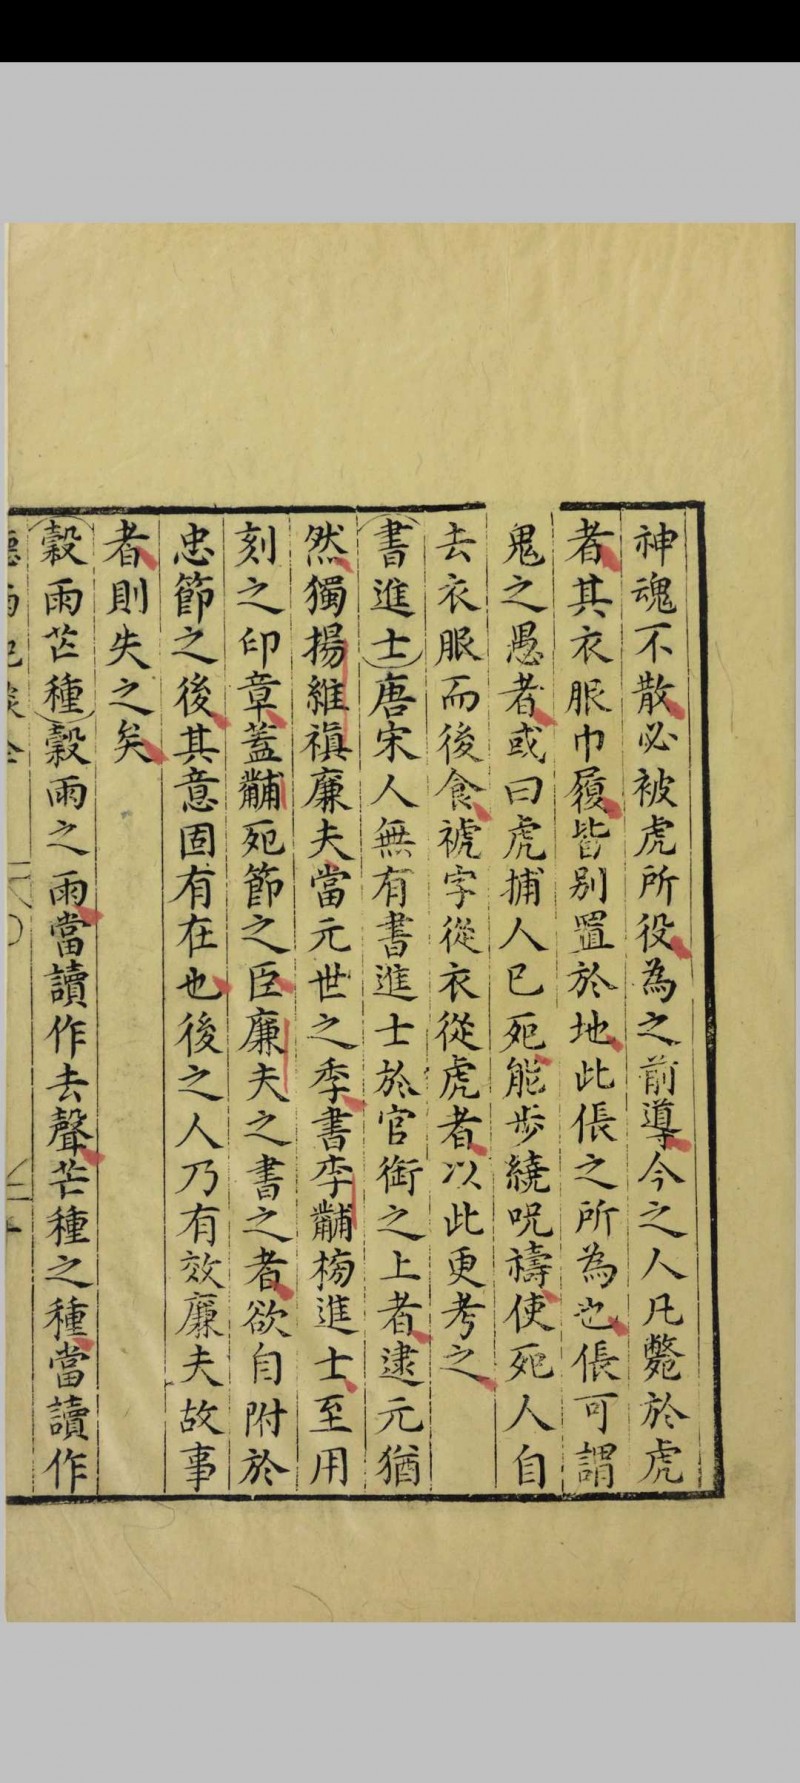 神魂不散必被虎所役為之前導今之人凡斃於虎
者其衣服巾履皆別置於地此倀之所為也倀可謂
鬼之愚者或曰虎捕人已死能步繞呪禱使死人自
去衣服而後食褫字從衣從虎者以此更考之
書進士唐宋人無有書進士於官銜之上者逮元猶
然獨揚維禎廉夫當元世之季書李黼榜進士至用
刻之印章蓋黼死節之臣廉夫之書之者欲自附於
忠節之後其意固有在也後之人乃有效廉夫故事
者則失之矣
穀雨芒種穀雨之雨當讀作去聲芒種之種當讀作